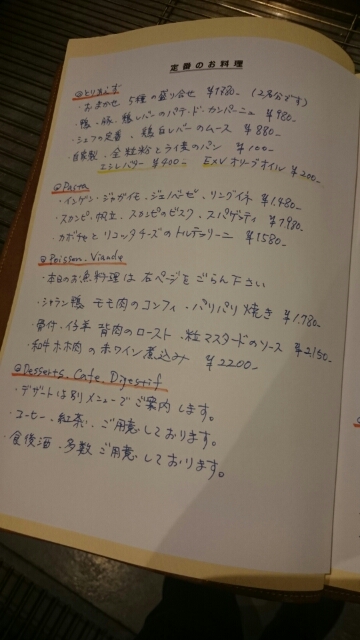 定番のお料理
◎とりあえず
・おまかせ 5種の盛り合せ ¥1980- (2名分です)
・鴨、豚、鶏レバーのパテ・ド・カンパーニュ ¥980-
・シェフの定番、鶏白レバーのムース ¥880-
・自家製、全粒粉とライ麦のパン ¥100-
エシレバター ¥400- EXVオリーブオイル ¥200-
◎Pasta
・インゲン・ジャガイモ・ジェノベーゼ、リングイネ ¥1.480-
・スカンピ、帆立、スカンピのビスク、スパゲッティ ¥1980-
・カボチャとリコッタチーズのトルテッリーニ ¥1580-
◎Poisson.Viande
・本日のお魚料理は右ページをごらん下さい
・シャラン鴨 モモ肉のコンフィ、パリパリ焼き ¥1.780-
・骨付・仔羊 背肉のロースト、粒マスタードのソース ¥2150-
・和牛ホホ肉の赤ワイン煮込み ¥2200-
◎Desserts.Cafe.Digestif
・デザートは別メニューでご案内します。
・コーヒー、紅茶、ご用意しております。
・食後酒、多数ご用意しております。